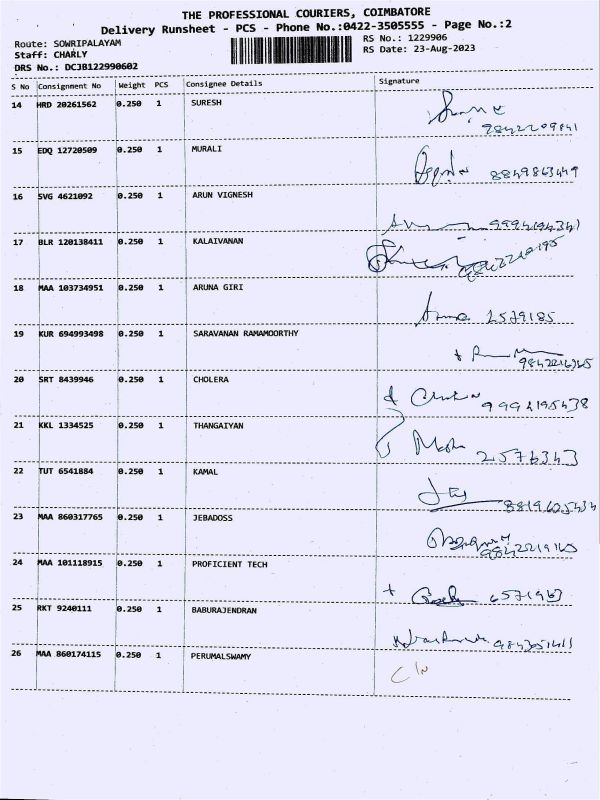 THE PROFESSIONAL COURIERS, COIMBATORE
Delivery Runsheet - PCS - Phone No.:0422-3505555 - Page No.:2
Route: SOWRIPALAYAM RS No.: 1229906
Staff: CHARLY RS Date: 23-Aug-2023
DRS No.: DCJB122990602
S No Consignment No Weight PCS Consignee Details Signature
14 HRD 20261562 0.250 1 SURESH
9842209841
15 EDQ 12720509 0.250 1 MURALI
8849863449
16 SVG 4621092 0.250 1 ARUN VIGNESH
17 BLR 120138411 0.250 1 KALAIVANAN
18 MAA 103734951 0.250 1 ARUNA GIRI
2579185
19 KUR 694993498 0.250 1 SARAVANAN RAMAMOORTHY
20 SRT 8439946 0.250 1 CHOLERA
21 KKL 1334525 0.250 1 THANGAIYAN
2576343
22 TUT 6541884 0.250 1 KAMAL
23 MAA 860317765 0.250 1 JEBADOSS
9842219165
24 MAA 101118915 0.250 1 PROFICIENT TECH
6571963
25 RKT 9240111 0.250 1 BABURAJENDRAN
26 MAA 860174115 0.250 1 PERUMALSWAMY